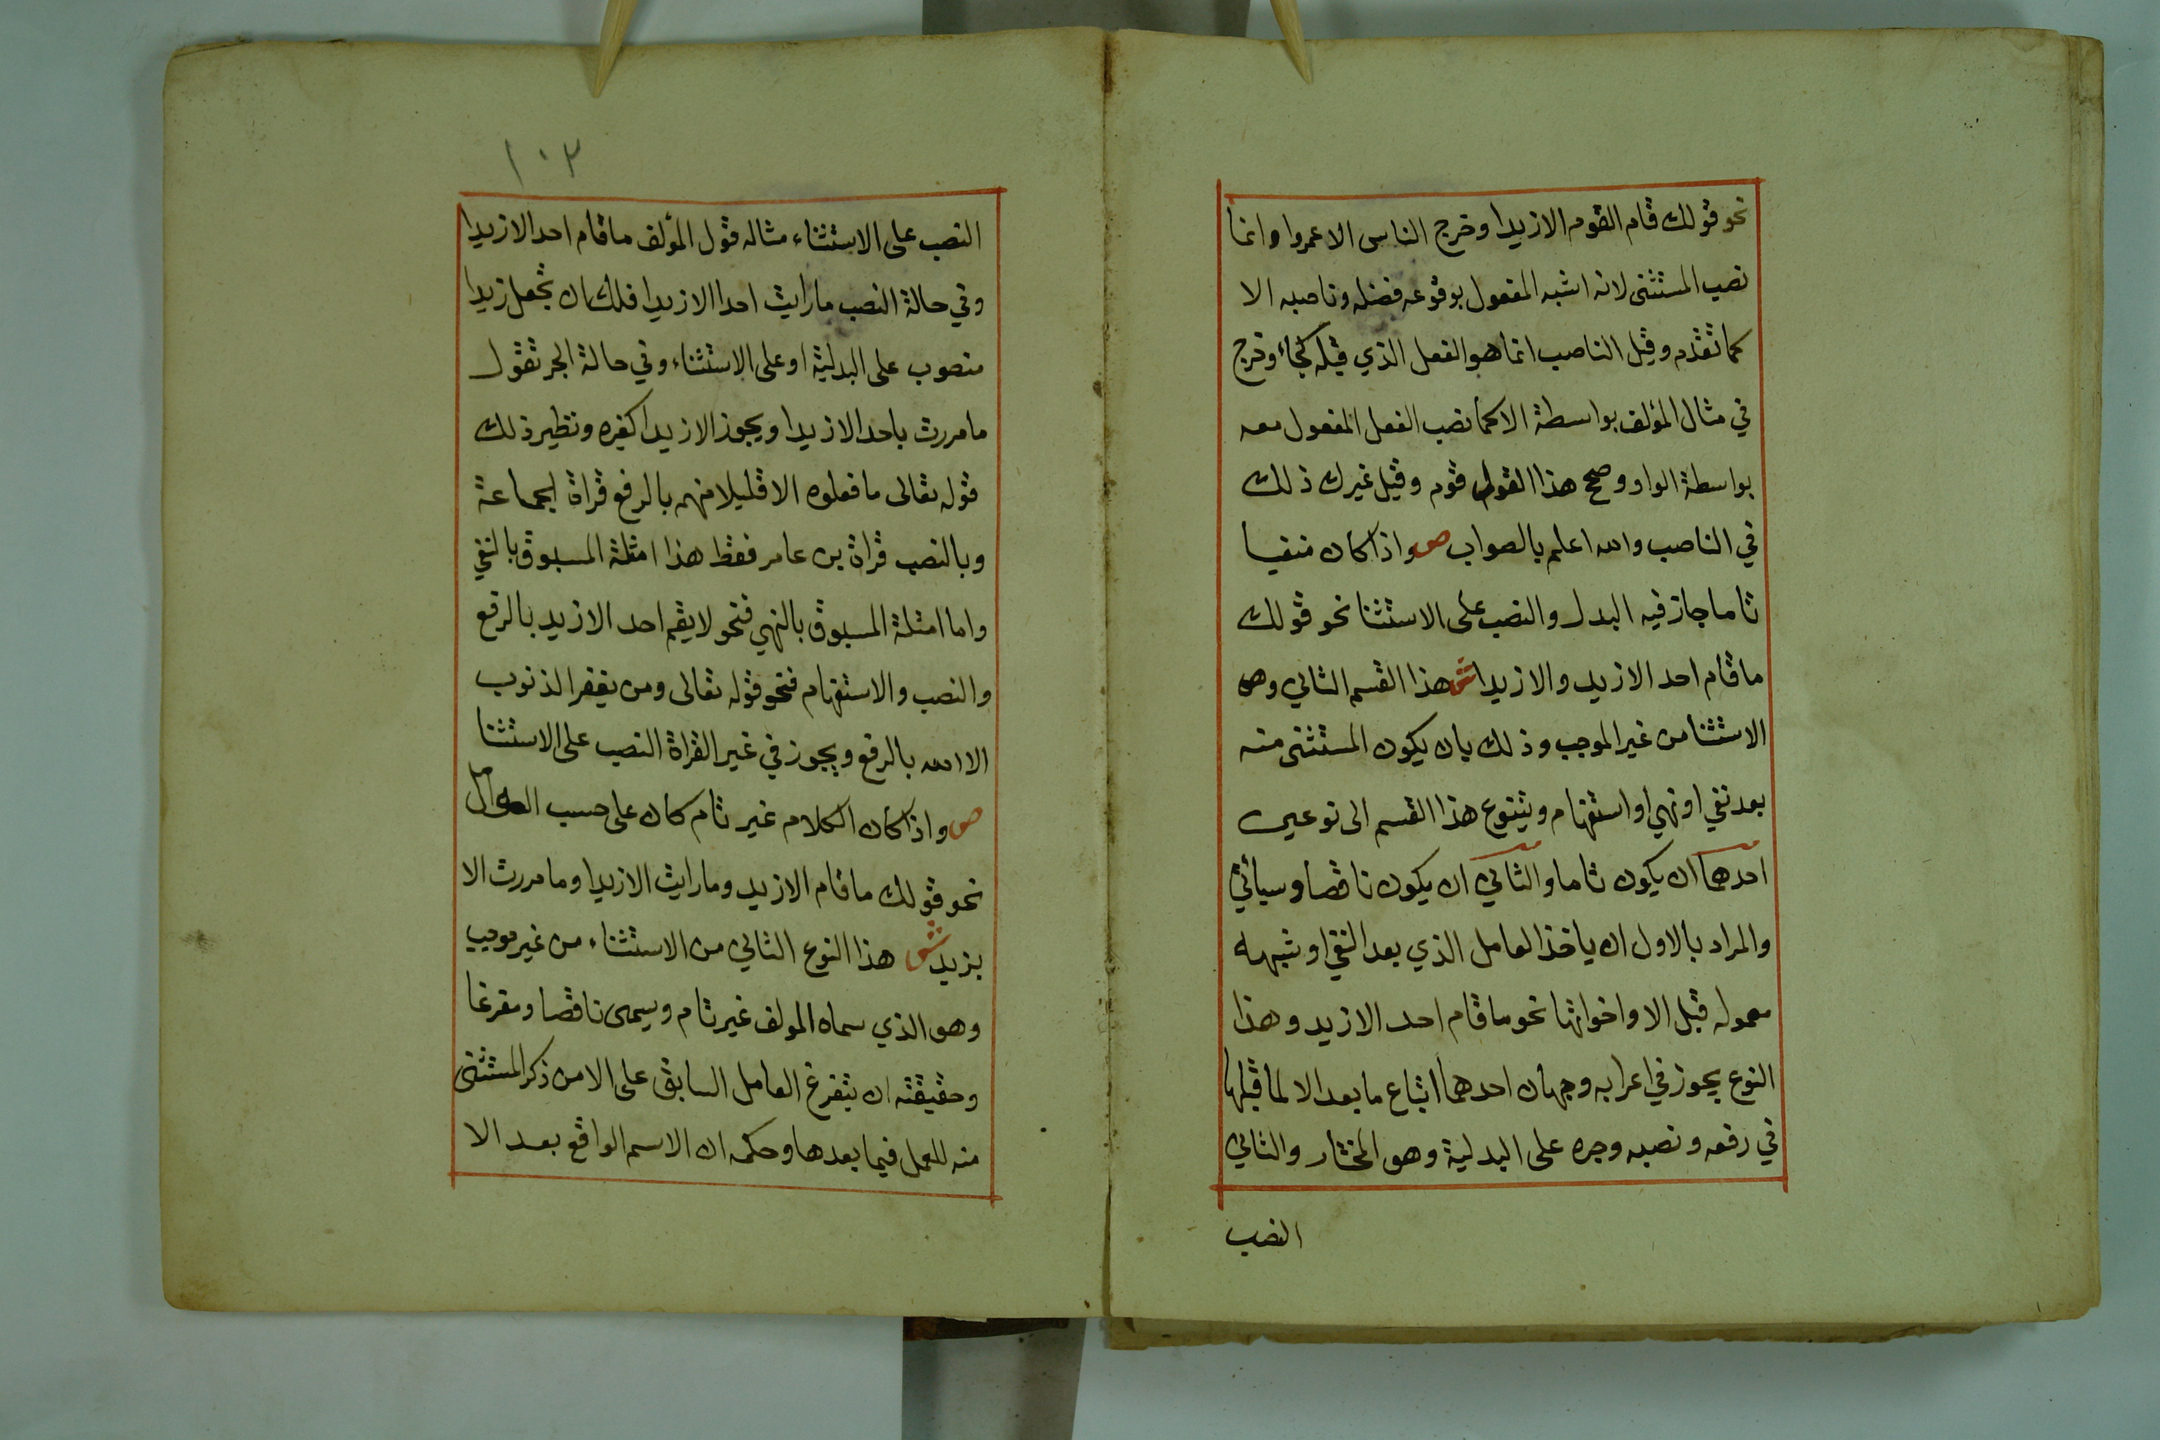 نحو قولك قام القوم الا زيدا وخرج الناس الا عمروا وانما
نصب المستثنى لانه اشبه المفعول بوقوعه فضله وناصبه الا
كما تقدم وقيل الناصب انما هو الفعل الذي قبله كجاء وخرج
في مثال المؤلف بواسطة الا كما نصب الفعل المفعول معه
بواسطة الواو وصحح هذا القول قوم وقيل غير ذلك
في الناصب والله اعلم بالصواب ص واذا كان منفيا
تاما جاز فيه البدل والنصب على الاستثنا نحو قولك
ما قام احد الا زيد والا زيدا ش هذا القسم الثاني وهو
الاستثنا من غير الموجب وذلك بان يكون المستثنى منه
بعد نفي او نهي او استفهام ويتنوع هذا القسم الى نوعين
احدهما ان يكون تاما والثاني ان يكون ناقصا وسياتي
والمراد بالاول ان ياخذ العامل الذي بعد النفي او شبهه
معموله قبل الا واخواتها نحو ما قام احد الا زيد وهذا
النوع يجوز في اعرابه وجهان احدهما اتباع ما بعد الا لما قبلها
في رفعه ونصبه وجره على البدلية وهو المختار والثاني
النصب
١٠٣
النصب على الاستثناء مثاله قول المؤلف ما قام احد الا زيدا
وفي حالة النصب ما رايت احدا الا زيدا فلك ان تجعل زيدا
منصوب على البدلية او على الاستثناء وفي حالة الجر تقول
ما مررت باحد الا زيدا ويجوز الا زيدا كغيره ونظير ذلك
قوله تعالى ما فعلوه الا قليلا منهم بالرفع قراة لجماعة
وبالنصب قراة بن عامر فقط هذا امثلة المسبوق بالنفي
واما امثلة المسبوق بالنهي فنحو لا يقم احد الا زيد بالرفع
والنصب والاستفهام فنحو قوله تعالى ومن يغفر الذنوب
الا الله بالرفع ويجوز في غير القراة النصب على الاستثنا
ص واذا كان الكلام غير تام كان على حسب العوامل
نحو قولك ما قام الا زيد وما رايت الا زيدا وما مررت الا
بزيد ش هذا النوع الثاني من الاستثناء من غير موجب
وهو الذي سماه المولف غير تام ويسمى ناقصا ومفرغا
وحقيقته ان يتفرغ العامل السابق على الا من ذكر المستثنى
منه للعمل فيما بعدها وحكمه ان الاسم الواقع بعد الا